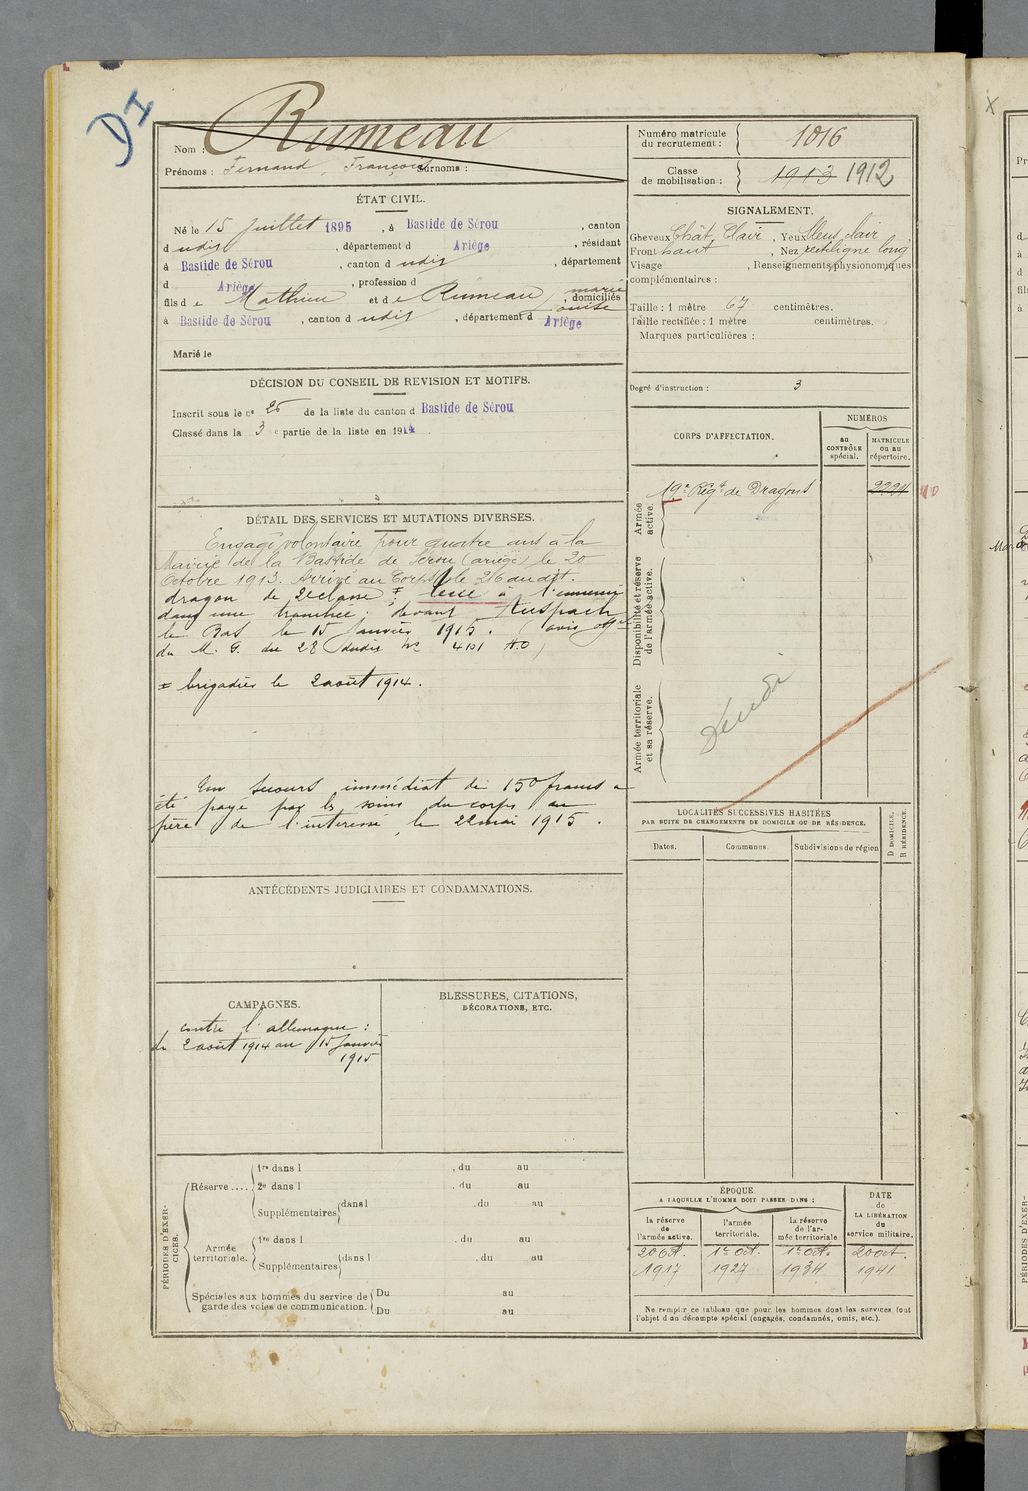 DI
Nom : Rumeau
Prénoms : Fernand, François Surnoms :
Numéro matricule du recrutement : 1016
Classe de mobilisation : 1913 1912
ÉTAT CIVIL.
Né le 15 Juillet 1895, à Bastide de Sérou, canton
d udis, département d Ariège, résidant
à Bastide de Sérou, canton d udis, département
d Ariège, profession d
fils de Mathieu et de Rumeau marie Louise, domiciliés
à Bastide de Sérou, canton d udis, département d Ariège
Marié le
SIGNALEMENT.
Cheveux Chât. Clair, Yeux bleus clair
Front haut, Nez rectiligne long
Visage , Renseignements physionomiques
complémentaires :
Taille : 1 mètre 67 centimètres.
Taille rectifiée : 1 mètre centimètres.
Marques particulières :
Degré d'instruction : 3
DÉCISION DU CONSEIL DE REVISION ET MOTIFS.
Inscrit sous le n° 25 de la liste du canton d Bastide de Sérou
Classé dans la 3 e partie de la liste en 1914
CORPS D'AFFECTATION.
NUMÉROS
au CONTRÔLE spécial.
MATRICULE ou au répertoire.
Armée active.
19e Régt de Dragons 2224
Disponibilité et réserve de l'armée active.
Armée territoriale et sa réserve.
DÉTAIL DES SERVICES ET MUTATIONS DIVERSES.
Engagé volontaire pour quatre ans à la
Mairie de la Bastide de Sérou (ariège) le 20
Octobre 1913. Arrivé au Corps le 26 dudit.
dragon de 2e classe ‡ tué à l'ennemi
dans une tranchée devant Auspach
le Bas le 15 Janvier 1915. (avis off
du M. G. du 28 dudit No 4101 H.O)
‡ brigadier le 2 août 1914.
Un secours immédiat de 150 francs a
été payé par les soins du corps au
père de l'intéressé, le 22 mai 1915.
LOCALITÉS SUCCESSIVES HABITÉES
PAR SUITE DE CHANGEMENTS DE DOMICILE OU DE RÉSIDENCE.
Dates.
Communes.
Subdivisions de région
D DOMICILE.
R RÉSIDENCE.
ANTÉCÉDENTS JUDICIAIRES ET CONDAMNATIONS.
CAMPAGNES.
contre l'allemagne :
du 2 août 1914 au 15 Janvier
1915
BLESSURES, CITATIONS,
DÉCORATIONS, ETC.
PÉRIODES D'EXERCICES.
Réserve....
1re dans l , du au
2e dans l , du au
Supplémentaires dans l , du au
Armée territoriale.
1re dans l , du au
Supplémentaires dans l , du au
Spéciales aux hommes du service de garde des voies de communication.
Du au
Du au
ÉPOQUE
A LAQUELLE L'HOMME DOIT PASSER DANS :
la réserve de l'armée active.
l'armée territoriale.
la réserve de l'armée territoriale
DATE de LA LIBÉRATION du service militaire.
20 Oct. 1er oct. 1er oct. 20 oct.
1917 1927 1934 1941
Ne remplir ce tableau que pour les hommes dont les services font
l'objet d'un décompte spécial (engagés, condamnés, omis, etc.).